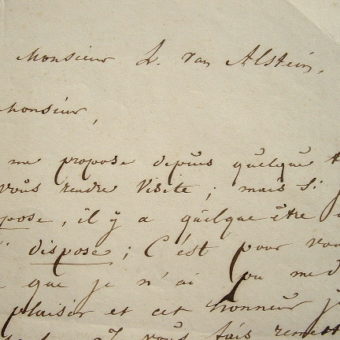 Monsieur L. van Alstein,
Monsieur,
me propose depuis quelque
vous rendre visite; mais si
pose, il y a quelque être
dispose; C'est pour vou
que je n'ai pu me
plaisir et cet honneur j
vous fais remett